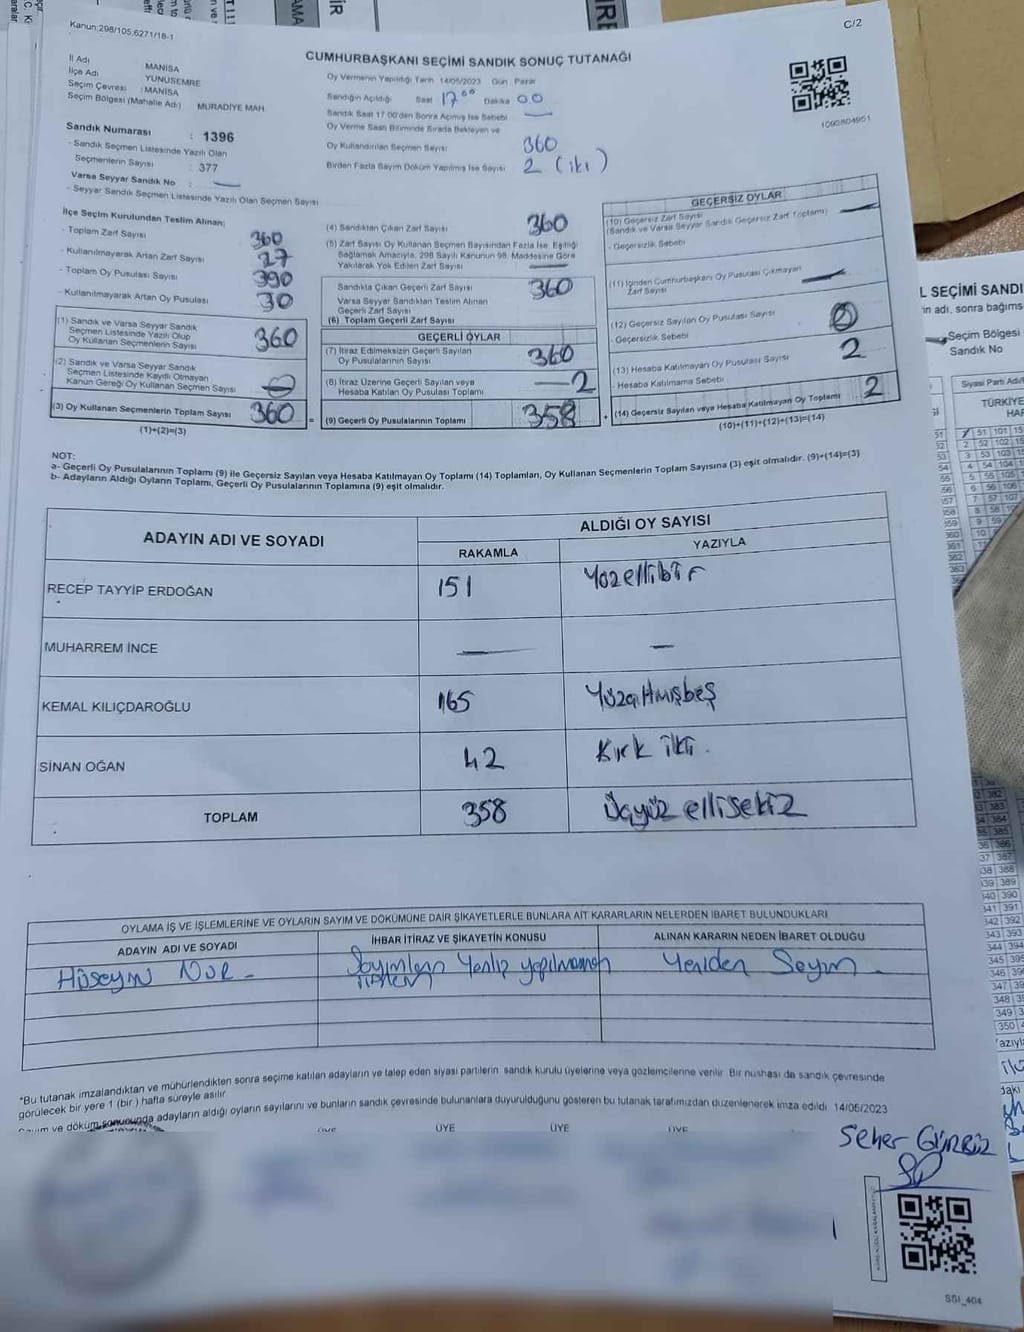 Kanun:298/105.6271/18-1
C/2
CUMHURBAŞKANI SEÇİMİ SANDIK SONUÇ TUTANAĞI
İl Adı MANİSA
İlçe Adı YUNUSEMRE
Seçim Çevresi :MANİSA
Seçim Bölgesi (Mahalle Adı) MURADİYE MAH
Oy Vermenin Yapıldığı Tarih 14/05/2023 Gün Pazar
Sandığın Açıldığı Saat 17 00 Dakika 00
Sandık Saat 17 00'den Sonra Açmış İse Sebebi
Oy Verme Saati Bitiminde Sırada Bekleyen ve
Oy Kullandırılan Seçmen Sayısı 360
Birden Fazla Sayım Döküm Yapılmış İse Sayısı 2 (iki)
1092804951
Sandık Numarası : 1396
- Sandık Seçmen Listesinde Yazılı Olan
Seçmenlerin Sayısı : 377
Varsa Seyyar Sandık No :
- Seyyar Sandık Seçmen Listesinde Yazılı Olan Seçmen Sayısı
İlçe Seçim Kurulundan Teslim Alınan;
- Toplam Zarf Sayısı 360
- Kullanılmayarak Artan Zarf Sayısı 27
- Toplam Oy Pusulası Sayısı 390
- Kullanılmayarak Artan Oy Pusulası 30
(1) Sandık ve Varsa Seyyar Sandık
Seçmen Listesinde Yazılı Olup
Oy Kullanan Seçmenlerin Sayısı 360
(2) Sandık ve Varsa Seyyar Sandık
Seçmen Listesinde Kayıtlı Olmayan
Kanun Gereği Oy Kullanan Seçmen Sayısı
(3) Oy Kullanan Seçmenlerin Toplam Sayısı 360 =
(1)+(2)=(3)
(4) Sandıktan Çıkan Zarf Sayısı 360
(5) Zarf Sayısı Oy Kullanan Seçmen Sayısından Fazla İse, Eşitliği
Sağlamak Amacıyla, 298 Sayılı Kanunun 98. Maddesine Göre
Yakılarak Yok Edilen Zarf Sayısı
Sandıkta Çıkan Geçerli Zarf Sayısı 360
Varsa Seyyar Sandıktan Teslim Alınan
Geçerli Zarf Sayısı
(6) Toplam Geçerli Zarf Sayısı
GEÇERLİ OYLAR
(7) İtiraz Edilmeksizin Geçerli Sayılan
Oy Pusulalarının Sayısı 360
(8) İtiraz Üzerine Geçerli Sayılan veya
Hesaba Katılan Oy Pusulası Toplamı —2
(9) Geçerli Oy Pusulalarının Toplamı 358 +
GEÇERSİZ OYLAR
(10) Geçersiz Zarf Sayısı
(Sandık ve Varsa Seyyar Sandık Geçersiz Zarf Toplamı)
- Geçersizlik Sebebi
(11) İçinden Cumhurbaşkanı Oy Pusulası Çıkmayan
Zarf Sayısı
(12) Geçersiz Sayılan Oy Pusulası Sayısı 0
Geçersizlik Sebebi
(13) Hesaba Katılmayan Oy Pusulası Sayısı 2
Hesaba Katılmama Sebebi
(14) Geçersiz Sayılan veya Hesaba Katılmayan Oy Toplamı 2
(10)+(11)+(12)+(13)=(14)
NOT:
a- Geçerli Oy Pusulalarının Toplamı (9) ile Geçersiz Sayılan veya Hesaba Katılmayan Oy Toplamı (14) Toplamları, Oy Kullanan Seçmenlerin Toplam Sayısına (3) eşit olmalıdır. (9)+(14)=(3)
b- Adayların Aldığı Oyların Toplamı, Geçerli Oy Pusulalarının Toplamına (9) eşit olmalıdır.
ADAYIN ADI VE SOYADI ALDIĞI OY SAYISI
RAKAMLA YAZIYLA
RECEP TAYYİP ERDOĞAN 151 Yüzellibir
MUHARREM İNCE — —
KEMAL KILIÇDAROĞLU 165 Yüzaltmışbeş
SİNAN OĞAN 42 Kırk iki.
TOPLAM 358 Üçyüz ellisekiz
OYLAMA İŞ VE İŞLEMLERİNE VE OYLARIN SAYIM VE DÖKÜMÜNE DAİR ŞİKAYETLERLE BUNLARA AİT KARARLARIN NELERDEN İBARET BULUNDUKLARI
ADAYIN ADI VE SOYADI İHBAR İTİRAZ VE ŞİKAYETİN KONUSU ALINAN KARARIN NEDEN İBARET OLDUĞU
Hüseyin NUR - Sayımların Yanlış yapılması Yeniden Sayım
*Bu tutanak imzalandıktan ve mühürlendikten sonra seçime katılan adayların ve talep eden siyasi partilerin sandık kurulu üyelerine veya gözlemcilerine verilir. Bir nüshası da sandık çevresinde
görülecek bir yere 1 (bir) hafta süreyle asılır
Sayım ve döküm sonucunda adayların aldığı oyların sayılarını ve bunların sandık çevresinde bulunanlara duyurulduğunu gösteren bu tutanak tarafımızdan düzenlenerek imza edildi 14/05/2023
ÜYE ÜYE ÜYE ÜYE
Seher GÜRBÜZ
SSI_404
L SEÇİMİ SANDI
Seçim Bölgesi
Sandık No
TÜRKİYE